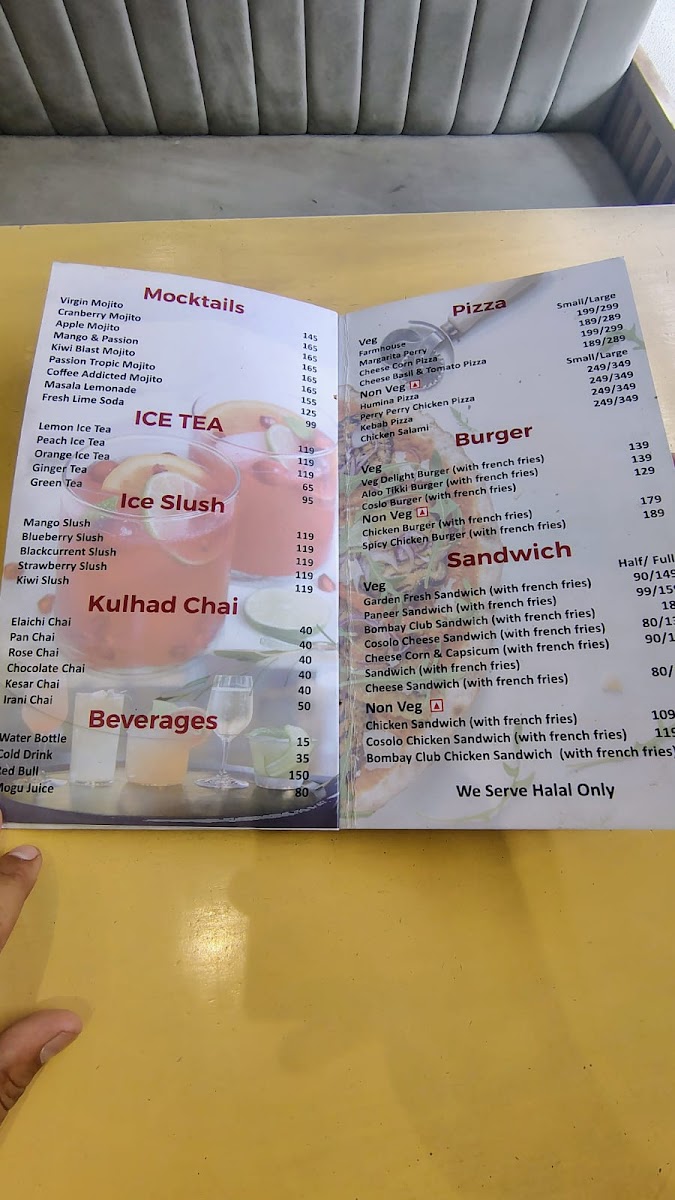 Mocktails
Virgin Mojito 145
Cranberry Mojito 165
Apple Mojito 165
Mango & Passion 165
Kiwi Blast Mojito 165
Passion Tropic Mojito 165
Coffee Addicted Mojito 155
Masala Lemonade 125
Fresh Lime Soda 99
ICE TEA
Lemon Ice Tea 119
Peach Ice Tea 119
Orange Ice Tea 119
Ginger Tea 65
Green Tea 95
Ice Slush
Mango Slush 119
Blueberry Slush 119
Blackcurrent Slush 119
Strawberry Slush 119
Kiwi Slush 119
Kulhad Chai
Elaichi Chai 40
Pan Chai 40
Rose Chai 40
Chocolate Chai 40
Kesar Chai 40
Irani Chai 50
Beverages
Water Bottle 15
Cold Drink 35
Red Bull 150
Mogu Juice 80
Pizza
Veg Small/Large
Farmhouse 199/299
Margarita Perry 189/289
Cheese Corn Pizza 199/299
Cheese Basil & Tomato Pizza 189/289
Non Veg Small/Large
Humina Pizza 249/349
Perry Perry Chicken Pizza 249/349
Kebab Pizza 249/349
Chicken Salami 249/349
Burger
Veg
Veg Delight Burger (with french fries) 139
Aloo Tikki Burger (with french fries) 139
Coslo Burger (with french fries) 129
Non Veg
Chicken Burger (with french fries) 179
Spicy Chicken Burger (with french fries) 189
Sandwich
Veg Half/ Full
Garden Fresh Sandwich (with french fries) 90/149
Paneer Sandwich (with french fries) 99/15
Bombay Club Sandwich (with french fries) 18
Cosolo Cheese Sandwich (with french fries) 80/13
Cheese Corn & Capsicum (with french fries) 90/1
Sandwich (with french fries)
Cheese Sandwich (with french fries) 80/
Non Veg
Chicken Sandwich (with french fries) 109
Cosolo Chicken Sandwich (with french fries) 119
Bombay Club Chicken Sandwich (with french fries)
We Serve Halal Only